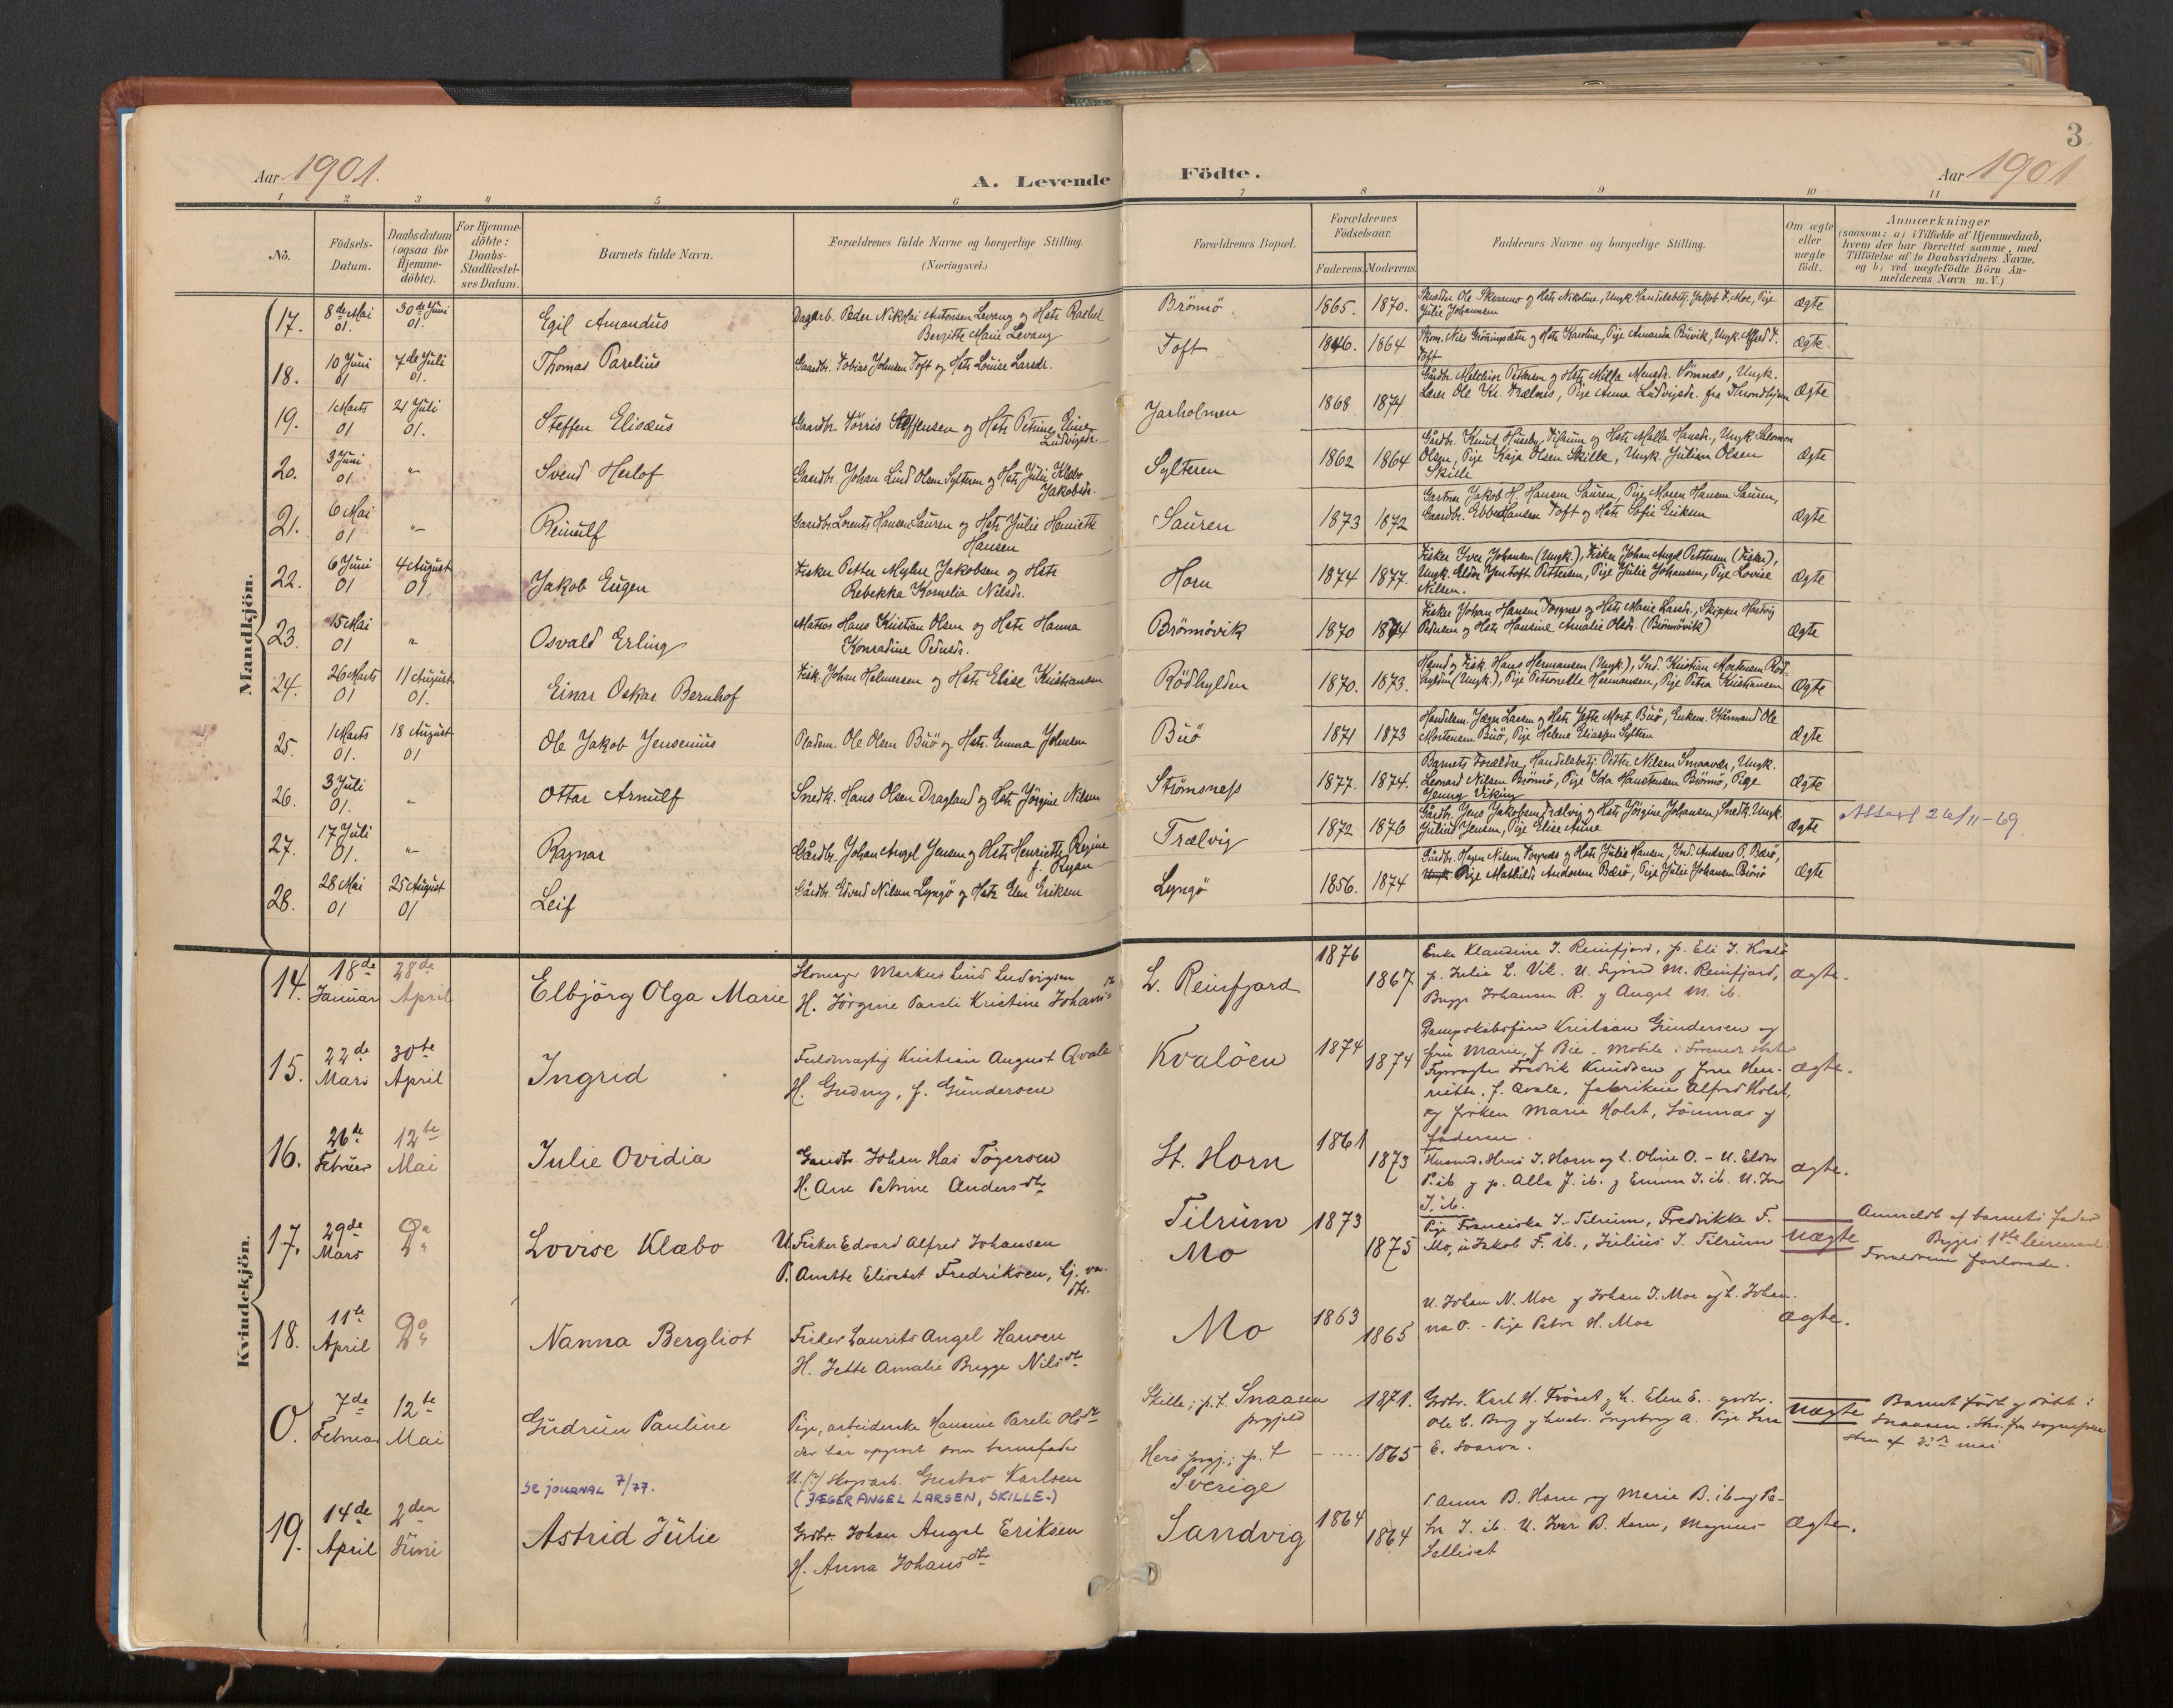 3
Aar 1901.
A. Levende Födte.
Aar 1901.
1 2 3 4 5 6 7 8 9 10 11
No.
Födsels-
Datum.
Daabsdatum
(ogsaa for
Hjemme-
döbte).
For Hjemme-
döbte:
Daabs-
Stadfæstel-
ses Datum.
Barnets fulde Navn.
Forældrenes fulde Navne og borgerlige Stilling.
(Næringsvei.)
Forældrenes Bopæl.
Forældrenes
Födselsaar.
Faderens. Moderens.
Faddernes Navne og borgerlige Stilling.
Om ægte
eller
uægte
födt.
Anmærkninger
(saasom: a) i Tilfælde af Hjemmedaab,
hvem der har forrettet samme, med
Tilföielse af to Daabsvidners Navne,
og b) ved uægtefödte Börn An-
melderens Navn m. V.)
Mandkjön.
17. 8de Mai 01. 30de Juni 01. Egil Amandus
Dagarb. Peder Nikolai Antonsen Levang og Hstr Rachel
Bergitte Marie Levang
Brönnö 1865. 1870.
Julie Johannsen
Ægte
18. 10 Juni 01 7de Juli 01. Thomas Parelius
Gaardbr. Tobias Johnsen Toft og Hstr Louise Larsdr.
Toft 1846. 1864
Toft
Ægte
19. 1 Marts 01 21 Juli 01. Steffen Elisæus
Gaardbr. Törris Steffensen og Hstr Petrine Eline
Ludvigsdr.
Jarholmen 1868 1874
Gårdbr. Melchior Pettersen og Hstr Milla Monsdr. Sömnæs, Ungk.
Lærer Ole Kr. Trælnes, Pige Anna Ludvigsdr. fra Throndhjem
Ægte
20. 3 Juni 01 "- Svend Herlof
Gaardbr. Johan Lind Olsen Sylteren og Hstr Julie Klæbo
Jakobsdr.
Sylteren 1862 1864
Gårdbr. Knud Huseby Tilrum og Hstr Malla Hansdr., Ungk. Salomon
Olsen, Pige Kaja Olsen Skille, Ungk. Julian Olsen
Skille
Ægte
21. 6 Mai 01 "- Reinulf
Gaardbr. Lorents Hansen Sauren og Hstr Julie Henriette
Hansen
Sauren 1873 1872
Gartner Jakob H. Hansen Sauren, Pige Maren Hansen Sauren,
Gaardbr. Ebbe Hansen Toft og Hstr Sofie Eriksen
Ægte
22. 6 Juni 01 4 August 01 Jakob Eugen
Fisker Petter Myhre Jakobsen og Hstr
Rebekka Kornelia Nilsdr.
Horn 1874 1877.
Fisker Iver Johansen (Ungk.), Fisker Johan Angel Pettersen (Fisker),
Ungk. Eldor Jentoft Pettersen, Pige Julie Johansen, Pige Lovise
Nilsen.
Ægte
23. 15 Mai 01 " Osvald Erling
Matros Hans Kristian Olsen og Hstr Hanna
Konradine Pedersdr.
Brönnövik 1870 1874
Fisker Johan Hansen Torgnes og Hstr Marie Larsdr., Skipper Hartvig
Pedersen og Hstr Hansine Amalie Olsdr. (Brönnövik)
Ægte
24. 26 Marts 01 11 August 01. Einar Oskar Bernhof
Fisk. Johan Helmersen og Hstr Elise Kristiansen
Rödhylden 1870. 1873.
Hans Hermansen (Ungk.), Ind. Kristian Mortensen Röd-
hylden (Ungk.), Pige Petronelle Hermansen, Pige Petra Kristiansen
Ægte
25. 1 Marts 01. 18 August 01 Ole Jakob Jensenius
Pladsm. Ole Olsen Buö og Hstr. Emma Johnsen
Buö 1874 1873
Handelsm. Jæger Larsen og Hstr Jette Mort. Buö, Enkem. Kårmand Ole
Mortensen Buö, Pige Helene Eliassen Sylten
Ægte
26. 3 Juli 01. " Ottar Arnulf
Snedk. Hans Olsen Dragland og Hstr Jörgine Nilsen
Strömsness 1877. 1874.
Barnets Forældre, Handelsbetj. Petter Nilsen Smaavær, Ungk.
Leonard Nilsen Brönnö, Pige Ida Hanstensen Brönnö, Pige
Jenny Viking
Ægte
27. 17 Juli 01. "- Ragnar
Gårdbr. Johan Angel Jensen og Hstr Henriette Regine
f. Ryan
Trælvig 1872 1876
Gårdbr. Jens Jakobsen Trælvig og Hstr Jörgine Johansen, Snedk. Ungk.
Julius Jensen, Pige Elise Aune
Ægte
Attest 26/11-69.
28. 28 Mai 01 25 August 01 Leif
Gårdbr. Edvard Nilsen Lyngö og Hstr Elen Eriksen
Lyngö 1856. 1874
Gårdbr. Hagen Nilsen Torgnes og Hstr Julie Hansen, Ind. Andreas P. Bærö,
Pige Mathilde Andersen Bærö, Pige Julie Johansen Brönö
Ægte
Kvindekjön.
14. 18de Januar 28de April Elbjörg Olga Marie
Markus Lind Ludvigsen
H. Jörgine Pareli Kristine Johans
L. Reinfjord 1876 1867
Enke Klaudine J. Reinfjord, p. Eli J. Kvalö
p. Julie L. Vik. U. Sigurd M. Reinfjord,
Brygge Johansen R. og Angel M. ib.
ægte.
15. 22de Mars 30te April Ingrid
Fuldmægtig Kristian August Qvale
H. Gudny, f. Gundersen
Kvalöen 1874 1874
Dampskibsförer Kristian Gundersen og
frue Marie, f. Bie.
Fyrvogter Fredrik Knudsen og Hen-
riette, f. Qvale, fabrikeier Alfred Holst,
og fröken Marie Holst, Sömnæs og
faderen.
ægte.
16. 26de Februar 12te Mai Julie Ovidia
Gaardbr. Johan Has Tögersen
H. Ane Petrine Andersdtr
St. Horn 1861 1873
Husmd. Hans J. Horn og h. Oline O. - U. Eldor
P. ib og p. Alla J. ib. og Emma J. ib. U. Iver
J. ib.
ægte.
17. 29de Mars Do Lovise Klæbo
U. Fisker Edvard Alfred Johansen
P. Anette Elisabet Fredriksen,
Tilrum
Mo 1873 1875
Pige Franciska J. Tilrum, Fredrikke F.
Mo, u Jakob F. ib., Julius J. Tilrum
uægte
Anmeldt af barnets fader
Forældrene forlovede.
18. 11te April Do Nanna Bergliot
Fisker Laurits Angel Hansen
H. Jette Amalie Brygge Nilsdtr
Mo 1863 1865
U. Johan N. Moe og Johan J. Moe og h. Johan-
na O. - Pige Petra H. Moe
ægte.
0. 7de Februar 12te Mai Gudrun Pauline
Pige, arbeiderske Hansine Pareli Olsdtr
der har opgivet som barnefader
U. (?) Skogsarb. Gustav Karlsen
(JÆGER ANGEL LARSEN, SKILLE.)
se JOURNAL 7/77.
Skille; p.t. Snaasen
prgjeld
Herö prgj.; p.t.
Sverige
1871. ----- 1865
Grdbr. Karl H. Fröset og h. Elen E.. grdbr.
Ole C. Berg og hustr. Ingeborg A. Pige
uægte
Barnet född og döbt i
Snaasen. Skr. fra sognepre-
sten af mai
19. 14de April 2den Juni Astrid Julie
Grdbr. Johan Angel Eriksen
H. Anna Johansdtr
Sandvig 1864 1864
P. Anna B. Horn og Marie B. ib og Pe-
tra J. ib. U. Iver B. Horn, Magnus
ægte.